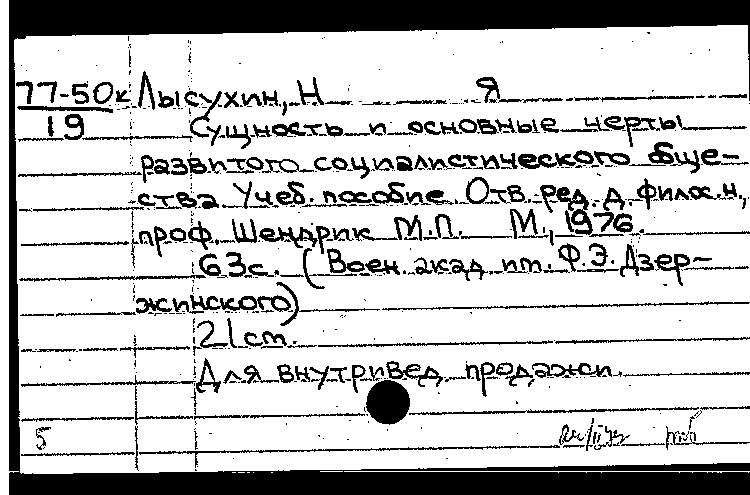 77-50к Лысухин, Н Я
19
Сущность и основные черты
развитого социалистического обще-
ства. Учеб. пособие. Отв. ред. д. филос. н.,
проф. Шендрик М.П. М., 1976.
63с. (Воен. акад. им. Ф.Э. Дзер-
жинского)
21cm.
Для внутривед. продажи.
5